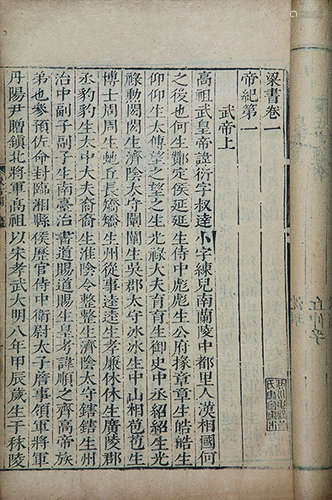 梁書卷一
帝紀第一
武帝上
高祖武皇帝諱衍字叔達小字練兒南蘭陵中都里人漢相國何
之後也何生酇定侯延延生侍中彪彪生公府掾章章生皓皓生
仰仰生太傅望之望之生光祿大夫育育生御史中丞紹紹生光
祿勳閎閎生濟陰太守闡闡生吳郡太守冰冰生中山相苞苞生
博士周周生虵丘長矯矯生州從事逵逵生孝廉休休生廣陵郡
丞豹豹生太中大夫裔裔生淮陰令整整生濟陰太守鎋鎋生州
治中副子副子生南臺治書道賜道賜生皇考諱順之齊高帝族
弟也參預佐命封臨湘縣侯歷官侍中衛尉太子詹事領軍將軍
丹陽尹贈鎮北將軍高祖以宋孝武大明八年甲辰歲生于秣陵